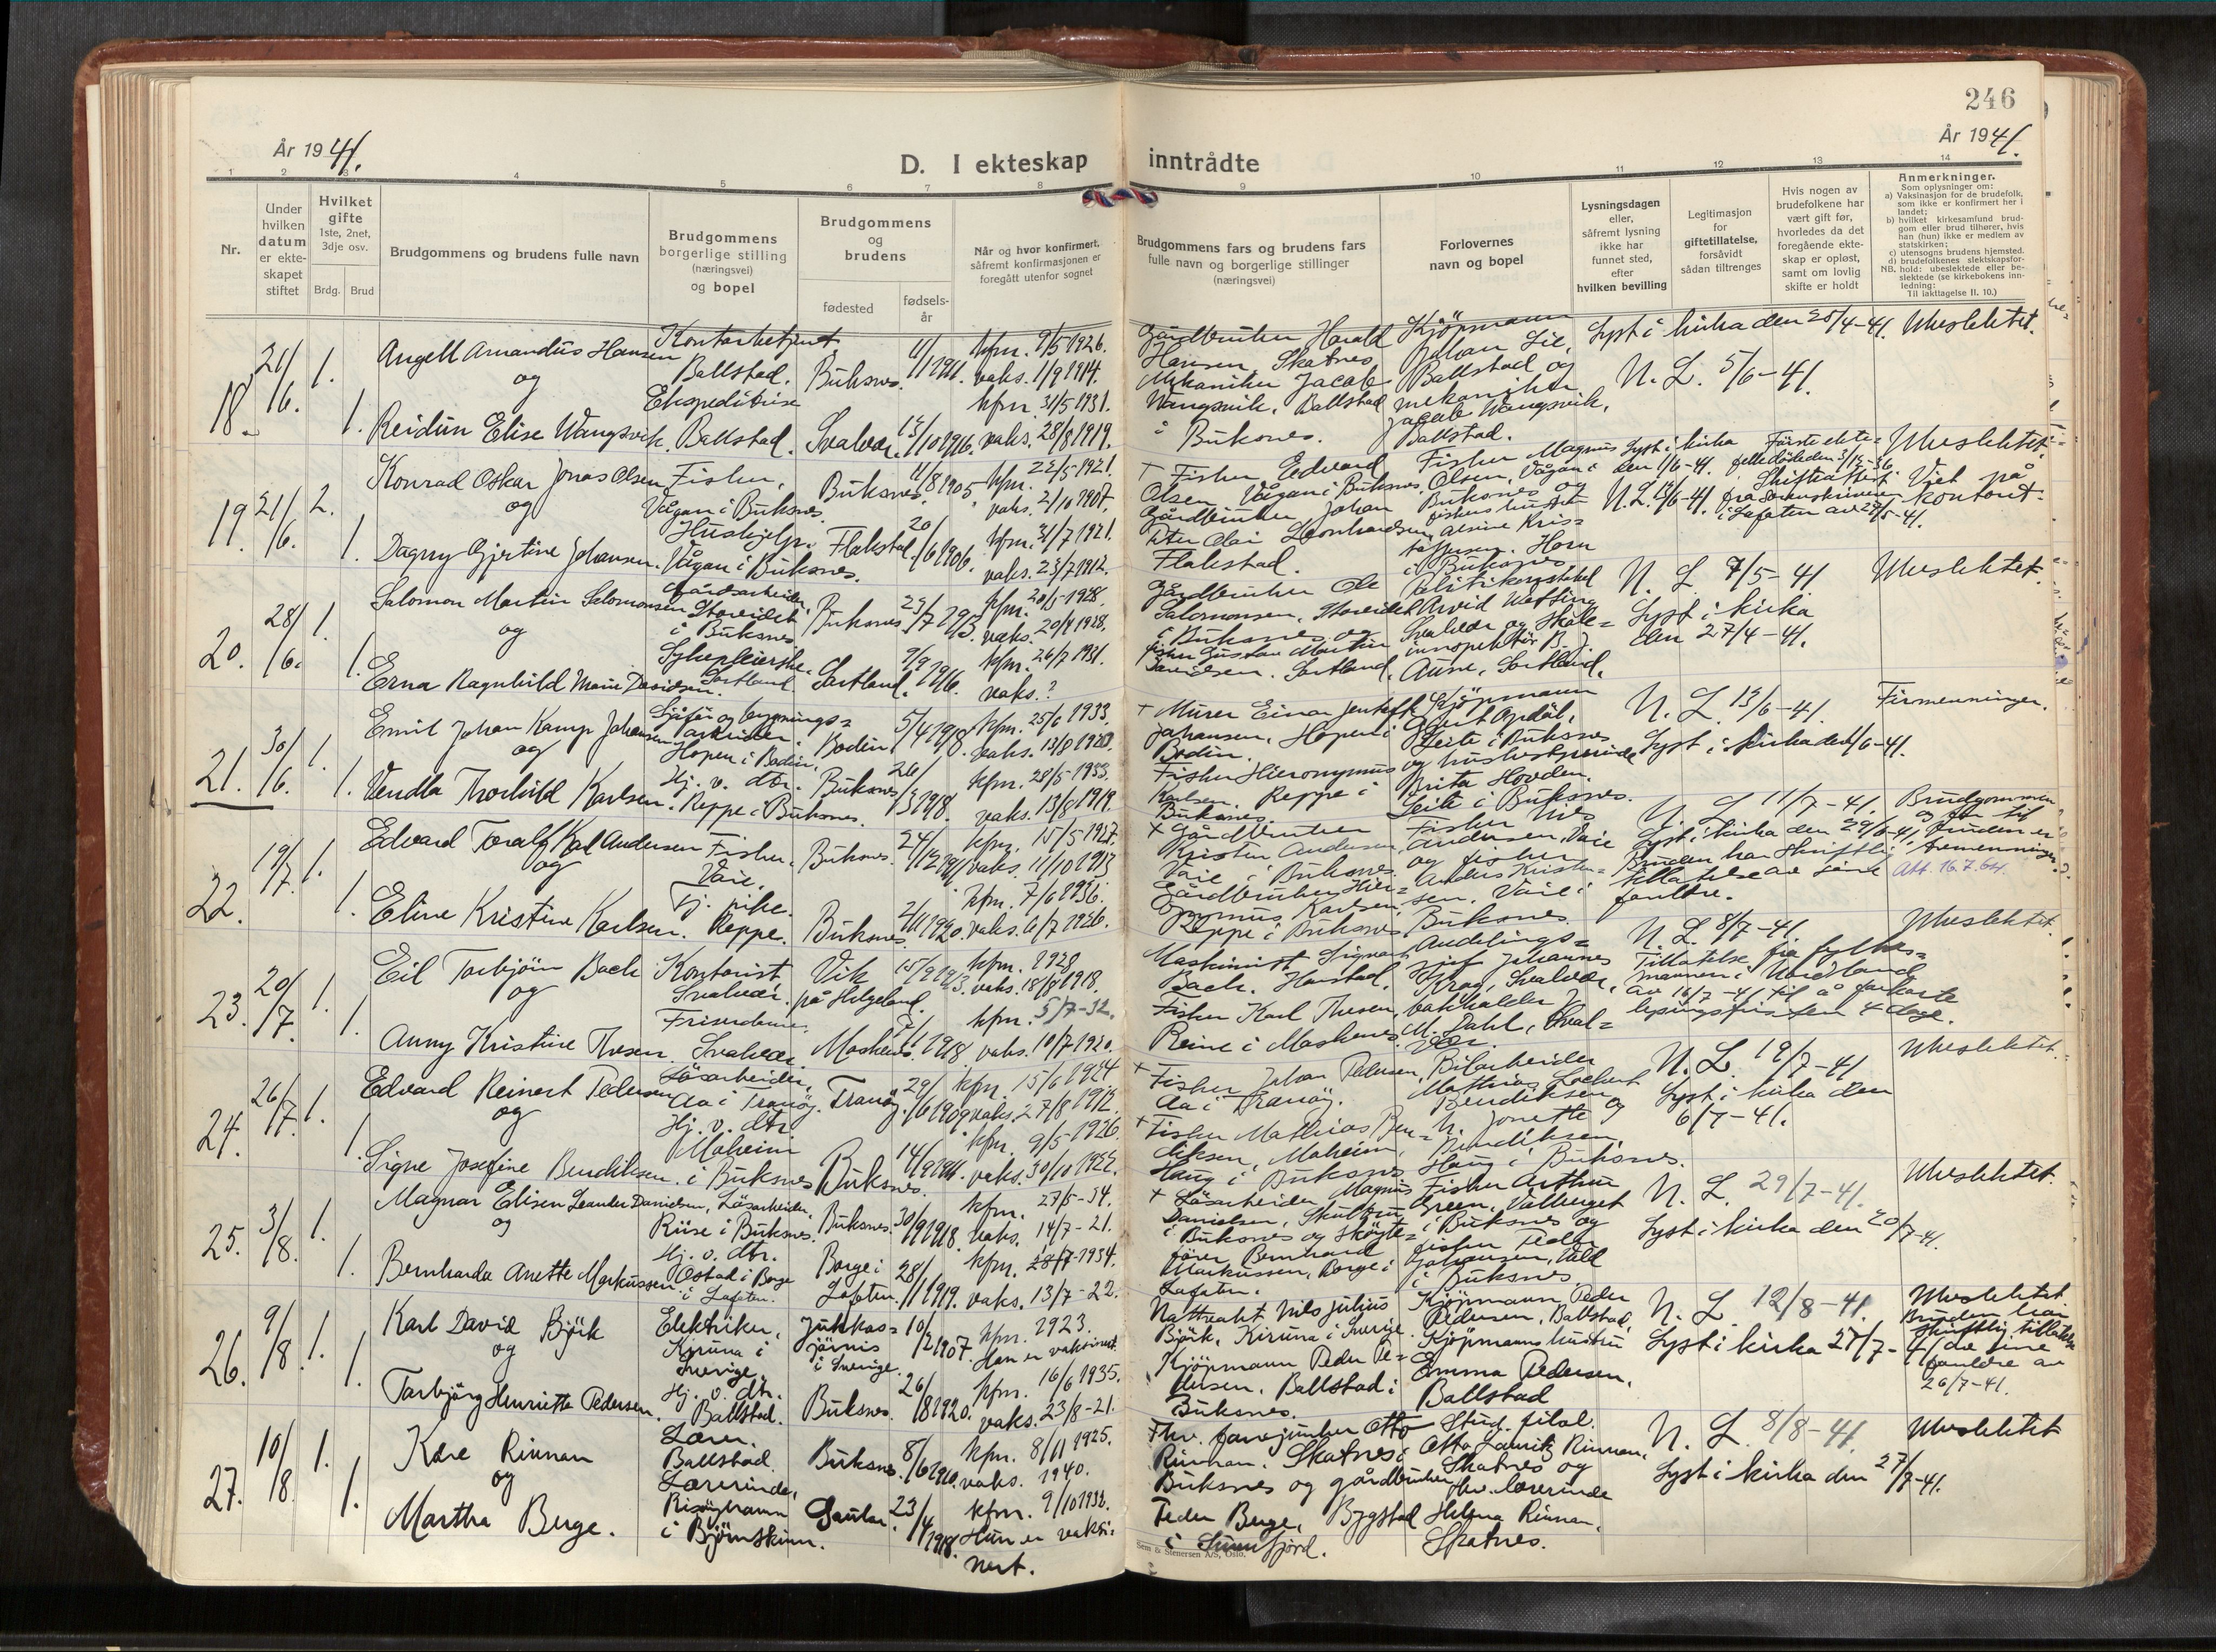 246
År 1941.
År 1941.
D. I ekteskap inntrådte
1 2 3 4 5 6 7 8 9 10 11 12 13 14
Nr.
Under hvilken datum er ekteskapet stiftet
Hvilket gifte
1ste, 2net, 3dje osv.
Brdg. Brud
Brudgommens og brudens fulle navn
Brudgommens borgerlige stilling (næringsvei) og bopel
Brudgommens og brudens
fødested
fødselsår
Når og hvor konfirmert, såfremt konfirmasjonen er foregått utenfor sognet
Brudgommens fars og brudens fars fulle navn og borgerlige stillinger (næringsvei)
Forlovernes navn og bopel
Lysningsdagen eller, såfremt lysning ikke har funnet sted, efter hvilken bevilling
Legitimasjon for giftetillatelse, forsåvidt sådan tiltrenges
Hvis nogen av brudefolkene har vært gift før, hvorledes da det foregående ekteskap er opløst, samt om lovlig skifte er holdt
Anmerkninger.
Som oplysninger om:
a) Vaksinasjon for de brudefolk, som ikke er konfirmert her i landet;
b) hvilket kirkesamfund brudgom eller brud tilhører, hvis han (hun) ikke er medlem av statskirken;
c) utensogns brudens hjemsted.
d) brudefolkenes slektskapsforhold: ubeslektede eller beslektede (se kirkebokens innledning:
NB.
Til iakttagelse II. 10.)
18. 21/6. 1. Angell Amandus Hansen Kontorbetjent Ballstad. Buksnes. 11/1 1911. kfm. 9/5 1926. vaks. 1/9 1914.
og
1. Reidun Elise Wangsvik. Ekspeditrise Ballstad. Svolvær. 13/10 1916. kfm. 31/5 1931. vaks. 28/8 1919.
Gårdbruker Harald Hansen Skotnes
Mekaniker Jacob Wangsvik, Ballstad i Buksnes.
Kjöpmann Johan Lie, Ballstad og mekaniker Jacob Wangsvik, Ballstad.
Lyst i kirka den 20/4-41.
N. L. 5/6-41.
Ubeslektet.
19. 21/6. 2. Konrad Oskar Jonas Olsen Fisker, Vågan i Buksnes. Buksnes. 11/8 1905. kfm. 22/5 1921. vaks. 2/10 1907.
og
1. Dagny Gjertine Johansen. Hushjelp. Vågan i Buksnes. Flakstad. 20/6 1906. kfm. 31/7 1921. vaks. 23/7 1912.
+ Fisker Edvard Olsen Vågan i Buksnes.
Gårdbruker Johan Peter Olai Leonhardsen Flakstad.
Fisker Magnus Olsen, Vågan i Buksnes og fiskers hustru Alvine Kristoffersen. Horn i Buksnes
Lyst i kirka den 1/6-41.
N. L. 13/6-41.
Förste ektefelle döde den 3/12-36. Skifteattest fra sorenskriveren i Lofoten av 27/5-41.
Ubeslektet.
Viet på kontoret.
20. 28/6. 1. Salomon Martin Salomonsen Gårdsarbeider, Storeidet i Buksnes Buksnes 23/7 1913. kfm. 20/5 1928. vaks. 20/8 1928.
og
1. Erna Ragnhild Marie Davidsen. Sykepleierske, Sortland Sortland. 9/9 1916. kfm. 26/7 1931. vaks. ?
Gårdbruker Ole Salomonsen, Storeidet i Buksnes og fisker Gustav Martin Davidsen. Sortland.
Politikonstabel Arvid Wæting Svolvær og Skoleinspektör B. J. Aune, Sortland.
N. L 7/5-41
Lyst i kirka den 27/4-41.
Ubeslektet.
21. 30/6. 1. Emil Johan Kamp Johansen Sjåför og bygningsarbeider. Hopen i Bodin. Bodin 5/4 1918. kfm. 25/6 1933. vaks. 13/8 1920.
og
1. Vendla Thorhild Karlsen. Hj. v. dtr. Reppe i Buksnes. Buksnes 26/3 1918. kfm. 28/5 1933. vaks. 13/8 1919.
+ Murer Einar Jentoft Johansen, Hopen i Bodin.
Fisker Hieronymus Karlsen. Reppe i Buksnes.
Kjöpmann Opdöl, Leite i Buksnes og husbestyrerinde Brita Hovden. Leite i Buksnes.
N. L. 13/6-41.
Lyst i kirka den 1/6-41.
Firmenninger.
22. 19/7. 1. Edvard Toralf Karl Andersen Fisker. Vaie. Buksnes. 24/12 1911 kfm. 15/5 1927. vaks. 11/10 1913
og
1. Eline Kristine Karlsen. Tj. pike. Reppe. Buksnes 2/11 1920. kfm. 7/6 1936. vaks. 6/7 1926.
+ Gårdbruker Kristen Andersen, Vaie i Buksnes.
Gårdbruker Hieronymus Karlsen. Reppe i Buksnes
Fisker Nils Andersen, Vaie og fisker Anders Kristensen, Vaie i Buksnes.
N. L 11/7-41.
Lyst i kirka den 29/6-41.
Bruden har skriftlig tillatelse av sine foreldre.
Brudgommen og far til bruden er tremenninger.
Att. 16.7.64.
23. 20/7. 1. Eil Torbjörn Bach Kontorist Svolvær. Vik på Helgeland. 15/9 1913. kfm. 1928. vaks. 18/8 1918.
og
1. Anny Kristine Thesen. Friserdame. Svolvær. Moskenes. 1918. kfm. 5/7-32. vaks. 10/7 1920.
Maskinist Sigvart Bach. Harstad.
Fisker Karl Thesen, Reine i Moskenes.
Avdelingssjef Johannes Krog, Svolvær, bokholder J. M. Dahl, Svolvær.
N. L. 8/7-41.
Tillatelse fra fylkesmannen i Nordland av 16/7-41 til å forkorte lysingsfristen 4 dage.
Ubeslektet.
24. 26/7. 1. Edvard Reinert Pedersen Lösarbeider, Aa i Tranöy. Tranöy. 29/6 1909 kfm. 15/6 1924 vaks. 27/8 1912.
og
1. Signe Josefine Bendiksen. Hj. v. dtr Moheim i Buksnes Buksnes. 14/9 1911. kfm. 9/5 1926. vaks. 30/10 1922.
+ Fisker Johan Pedersen, Aa i Tranöy.
+ Fisker Mathias Bendiksen, Moheim, Haug i Buksnes
Bilarbeider Mathias Lockert Bendiksen og N. Jonette Bendiksen. Haug i Buksnes.
N. L. 19/7-41
Lyst i kirka den 6/7-41.
Ubeslektet.
25. 3/8. 1. Magnar Elisen Leander Danielsen, Lösarbeider, Riise i Buksnes. Buksnes. 30/9 1918. kfm. 27/5-34. vaks. 14/7-21.
og
1. Bernharda Anette Markussen. Hj. v. dtr. Ostad i Borge i Lofoten. Borge i Lofoten. 28/1 1919. kfm. 28/7-1934. vaks. 13/7-22.
+ Lösarbeider Magnus Danielsen, Skultbru i Buksnes og Sköyteförer Bernhard Markussen, Borge i Lofoten.
Fisker Arthur Green, Valberget i Buksnes og fisker Peder Johansen, Vold i Buksnes
N. L. 29/7-41.
Lyst i kirka den 20/7-41.
Ubeslektet.
26. 9/8. 1. Karl David Björk Elektriker, Kiruna i Sverige. Jukkasjärvis i Sverige. 10/2 1907 kfm. 1923. Han er vaksinert.
og
1. Torbjörg Henriette Pedersen. Hj. v. dtr. Ballstad. Buksnes. 26/8 1920. kfm. 16/6 1935. vaks. 23/8-21.
Nattvakt Nils Julius Björk, Kiruna i Sverige.
Kjöpmann Peder Pedersen. Ballstad i Buksnes.
Kjöpmann Peder Pedersen, Ballstad, Kjöpmannshustru Emma Pedersen, Ballstad
N. L. 12/8-41.
Lyst i kirka 27/7-41
Ubeslektet
Bruden har skriftlig tillatelse av sine foreldre av 26/7-41.
27. 10/8. 1. Kåre Rinnan Lærer. Ballstad. Buksnes. 8/6 1910. kfm. 8/11 1925. vaks. 1940.
og
1. Martha Berge. Lærerinde, Risöyhamn i Björnskinn. Gaular. 23/4 1918. kfm. 9/10 1932. Hun er vaksinert.
Hv. farejunker Otto Rinnan. Skotnes i Buksnes og gårdbruker Peder Berge, Bygstad i Sunnfjord.
Stud. filol. Otto Laurits Rinnan, Skotnes og Hv. lærerinde Helma Rinnan, Skotnes.
N. L. 8/8-41.
Lyst i kirka den 27/7-41.
Ubeslektet
Sem & Stenersen A/S, Oslo.